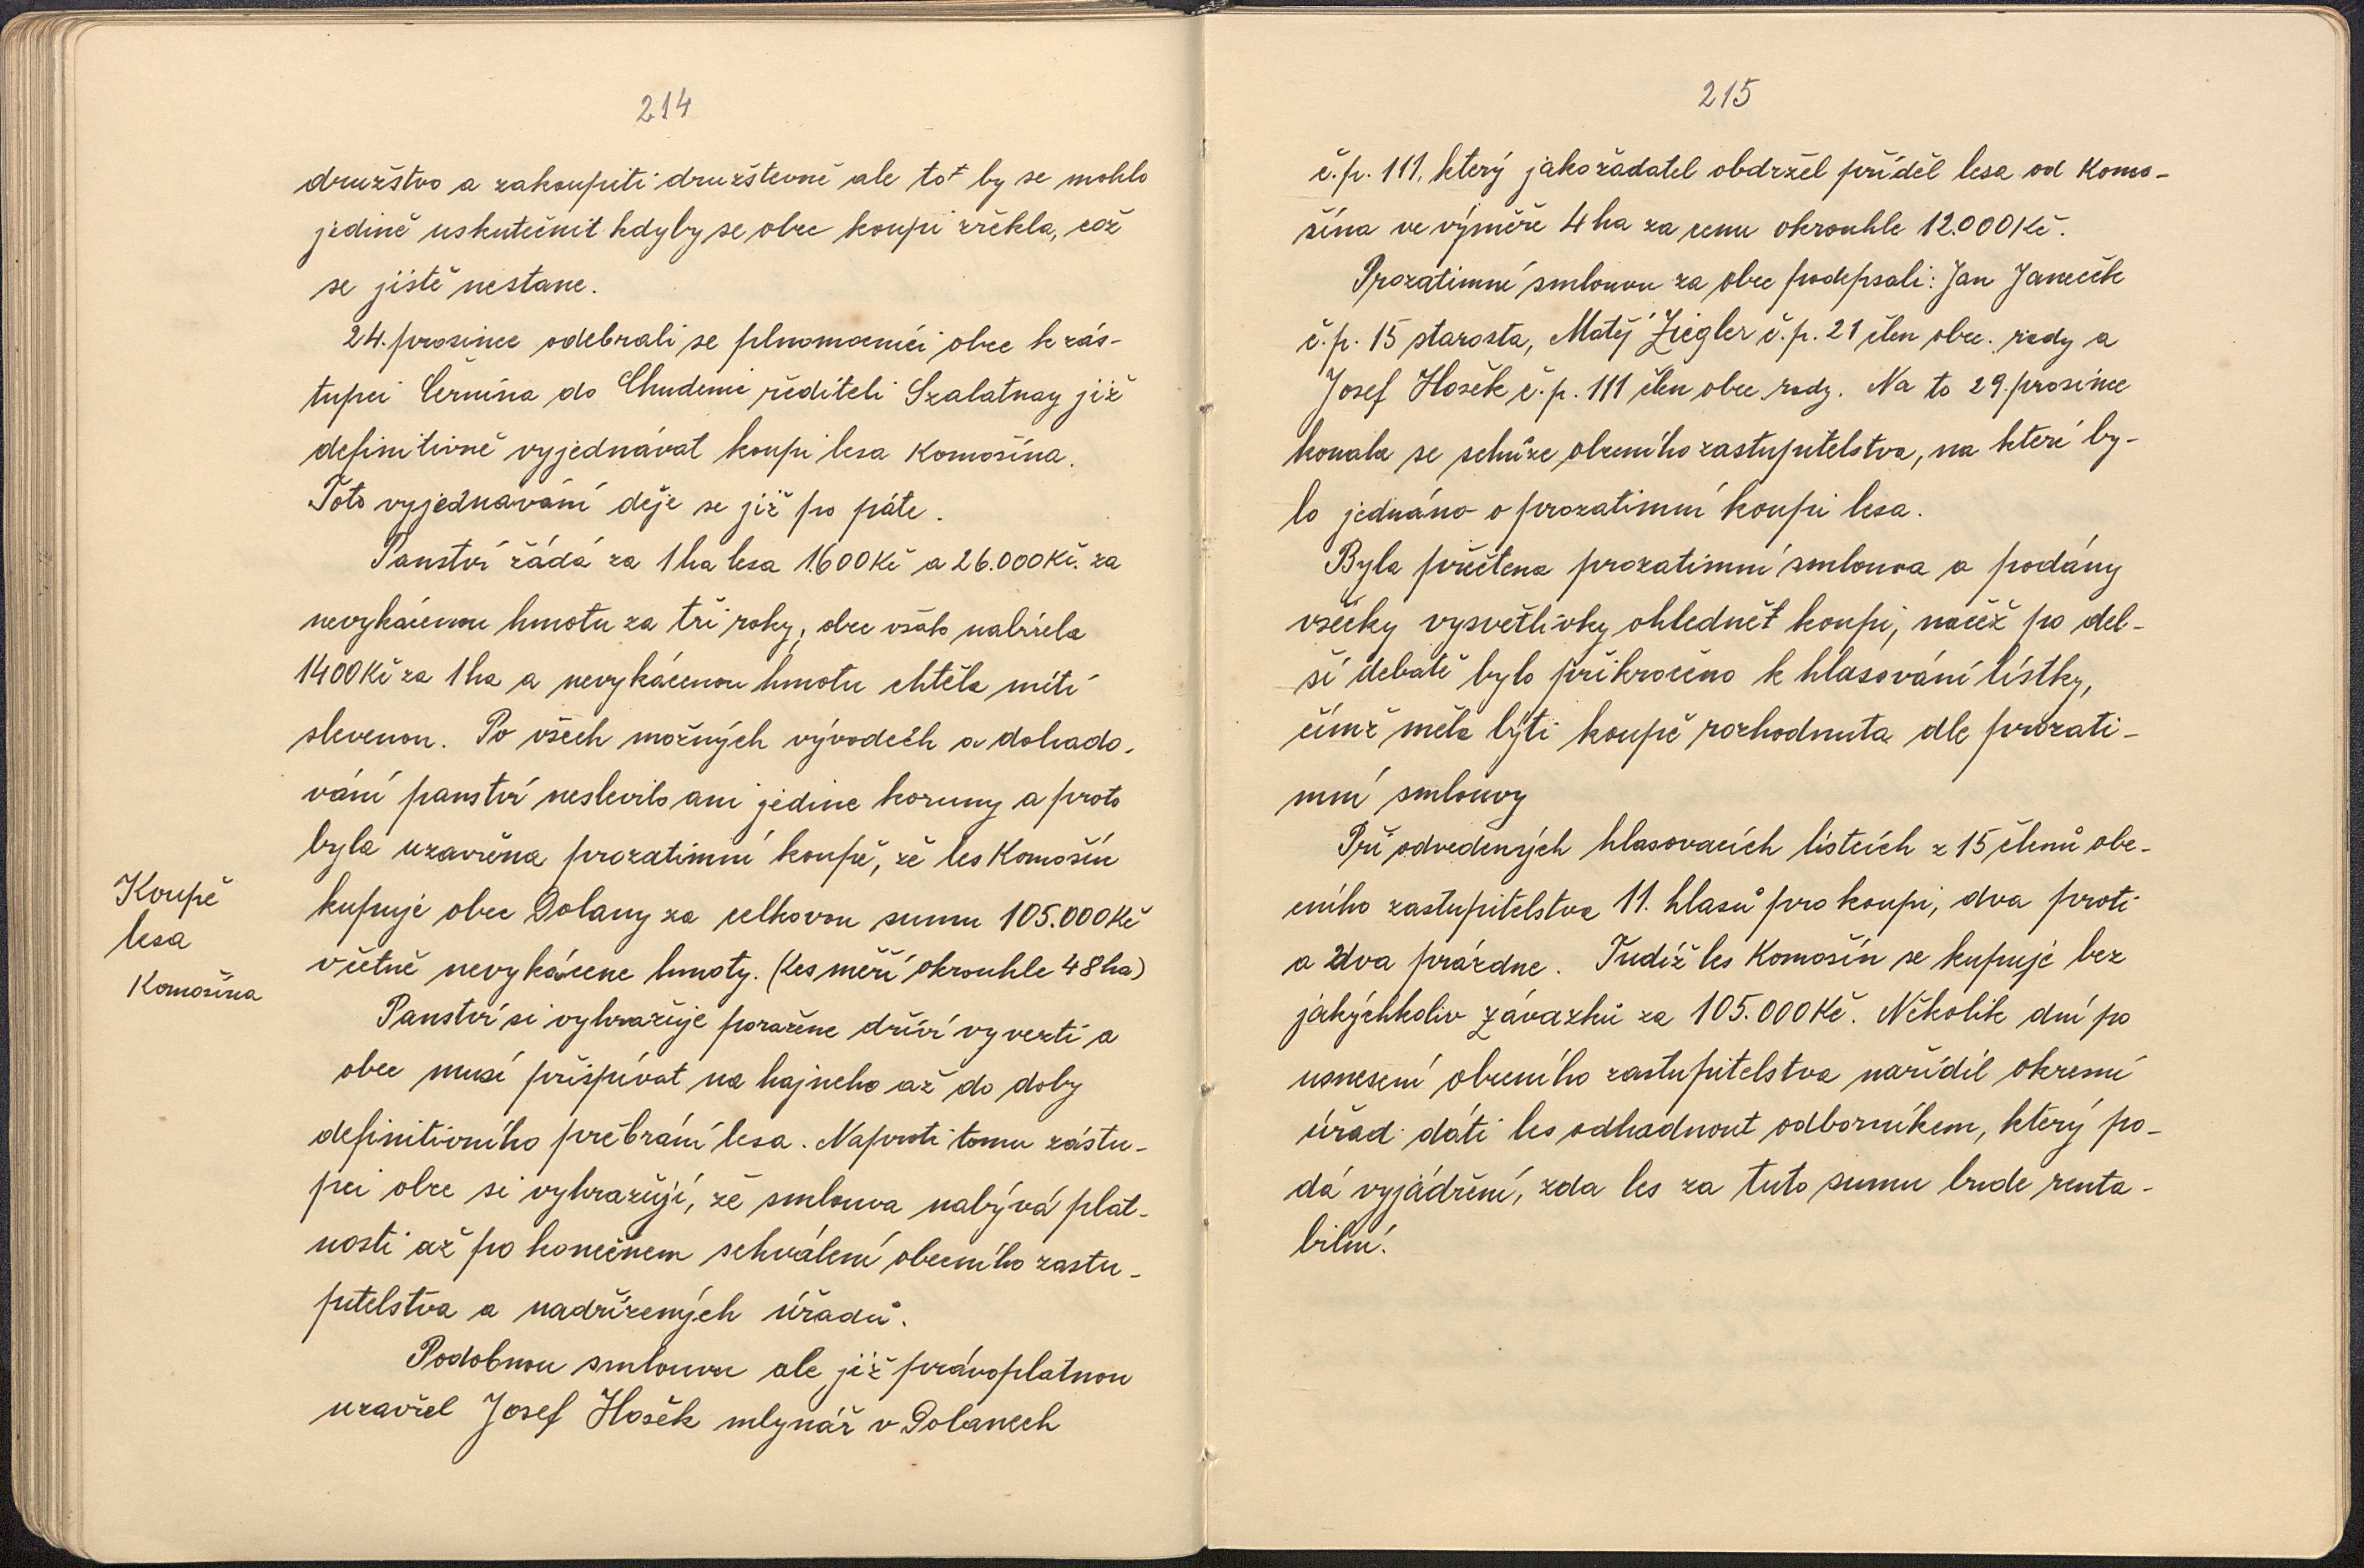 214
družstvo a zakoupiti družstevně ale tot by se mohlo
jedině uskutečnit kdyby se obec koupi zřekla, což
se jistě nestane.
24. prosince odebrali se plnomocníci obce k zás-
tupci Černína do Chudenic řediteli Szalatnay již
definitivně vyjednávat koupi lesa Komošína.
Toto vyjednavání děje se již po páte.
Panství žádá za 1 ha lesa 1.600 Kč a 26.000 Kč. za
nevykácenou hmotu za tři roky, obec však nabízela
1400 Kč za 1 ha a nevykácenou hmotu chtěla míti
slevenou. Po všech možných vývodech a dohado-
vání panství neslevilo ani jedine koruny a proto
byla uzavřena prozatimní koupě, že les Komošín
kupuje obec Dolany za celkovou sumu 105.000 Kč
včetně nevykácene hmoty. (Les měří okrouhle 48 ha)
Koupě
lesa
Komošína
Panství si vyhražuje poražene dříví vyvezti a
obec musí přispívat na hajneho až do doby
definitivního přebrání lesa. Naproti tomu zástu-
pci obce si vyhražují, že smlouva nabývá plat-
nosti až po konečnem schválení obecního zastu-
pitelstva a nadřízených úřadů.
Podobnou smlouvu ale již právoplatnou
uzavřel Josef Hosěk mlynář v Dolanech
215
č.p. 111, který jako žadatel obdržel příděl lesa od Komo-
šína ve výměře 4 ha za cenu okrouhle 12.000 Kč.
Prozatimní smlouvu za obec podepsali: Jan Janeček
č.p. 15 starosta, Matěj Ziegler č.p. 21 člen obec. rady a
Josef Hosěk č.p. 111 člen obec. rady. Na to 29. prosince
konala se schůze obecního zastupitelstva, na ktere by-
lo jednáno o prozatimní koupi lesa.
Byla přečtena prozatimní smlouva a podány
všecky vysvětlivky ohlednět koupi, načež po del-
ší debatě bylo přikročeno k hlasování lístky,
čímž měla býti koupě rozhodnuta dle prozati-
mní smlouvy
Při odvedených hlasovacích lístcích z 15 členů obe-
cního zastupitelstva 11. hlasů pro koupi, dva proti
a dva prázdne. Tudíž les Komošín se kupuje bez
jakýchkoliv závazků za 105.000 Kč. Několik dní po
usnesení obecního zastupitelstva nařídil okresní
úřad dáti les odhadnout odborníkem, který po-
dá vyjádření, zda les za tuto sumu bude renta-
bilní.